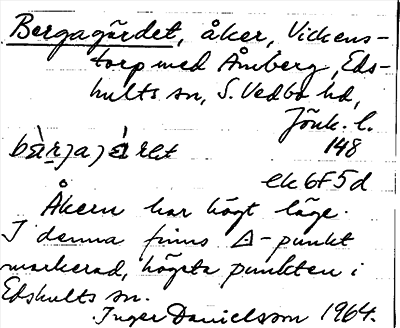 Bergagärdet, åker, Vickens-
torp med Åmberg, Eds-
hults sn, S. Vedbo hd,
Jönk. l.
148
ek 6F5d
Åkern har högt läge.
I denna finns △-punkt
markerad, högsta punkten i
Edshults sn.
Inger Danielsson 1964.